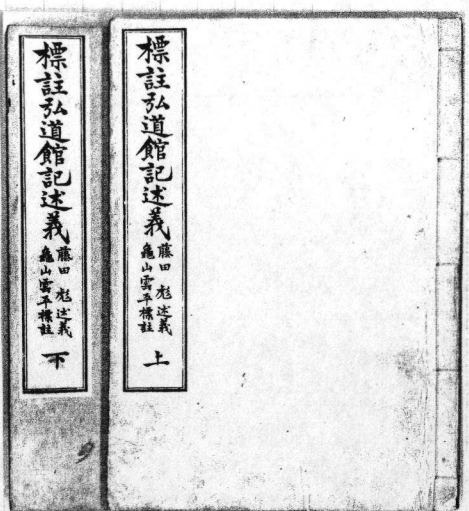 標註弘道館記述義
藤田 彪述義
龜山雲平標註
上
標註弘道館記述義
藤田 彪述義
龜山雲平標註
下